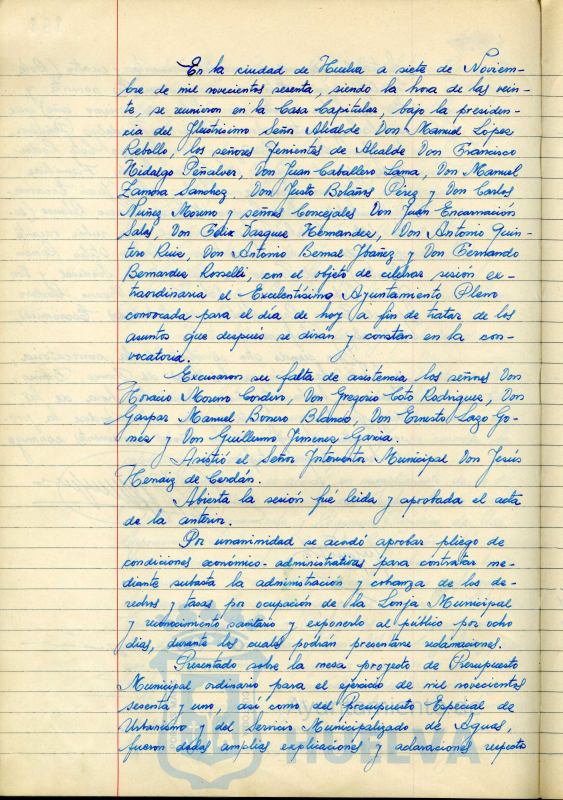 En la ciudad de Huelva a siete de Noviem-
bre de mil novecientos sesenta, siendo la hora de las vein-
te, se reunieron en la Casa Capitular, bajo la presiden-
cia del Ilustrísimo Señor Alcalde Don Manuel López
Rebollo, los señores Tenientes de Alcalde Don Francisco
Hidalgo Peñalver, Don Juan Caballero Lama, Don Manuel
Zamora Sanchez, Don Justo Bolaños Pérez y Don Carlos
Nuñez Moreno y señores Concejales Don Juan Encarnación
Salas, Don Felix Vasquez Hernandez, Don Antonio Quin-
tero Ruiz, Don Antonio Bernal Ybañez y Don Fernando
Bernardez Rosselli, con el objeto de celebrar sesión ex-
traordinaria el Excelentísimo Ayuntamiento Pleno
convocada para el día de hoy a fin de tratar de los
asuntos que después se dirán y constan en la con-
vocatoria.
Excusaron su falta de asistencia los señores Don
Horacio Moreno Cordero, Don Gregorio Coto Rodriguez, Don
Gaspar Manuel Bonero Blanco, Don Ernesto Lazo Go-
mez y Don Guillermo Jimenez Garcia.
Asistió el Señor Interventor Municipal Don Jesús
Henaiz de Cerdán.
Abierta la sesión fué leida y aprobada el acta
de la anterior.
Por unanimidad se acordó aprobar pliego de
condiciones económico-administrativas para contratar me-
diante subasta la administración y cobranza de los de-
rechos y tasas por ocupación de la Lonja Municipal
y reconocimiento sanitario y exponerlo al público por ocho
días, durante los cuales podrán presentarse reclamaciones.
Presentado sobre la mesa proyecto de Presupuesto
Municipal ordinario para el ejercicio de mil novecientos
sesenta y uno, así como del Presupuesto Especial de
Urbanismo y del Servicio Municipalizado de Aguas,
fueron dadas amplias explicaciones y aclaraciones respecto
HUELVA